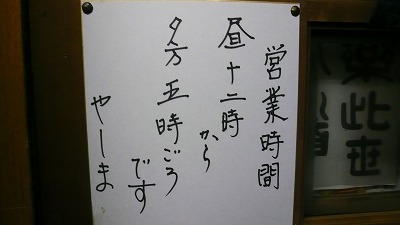 営業時間
昼十二時
から
夕方五時ごろ
です
やしま